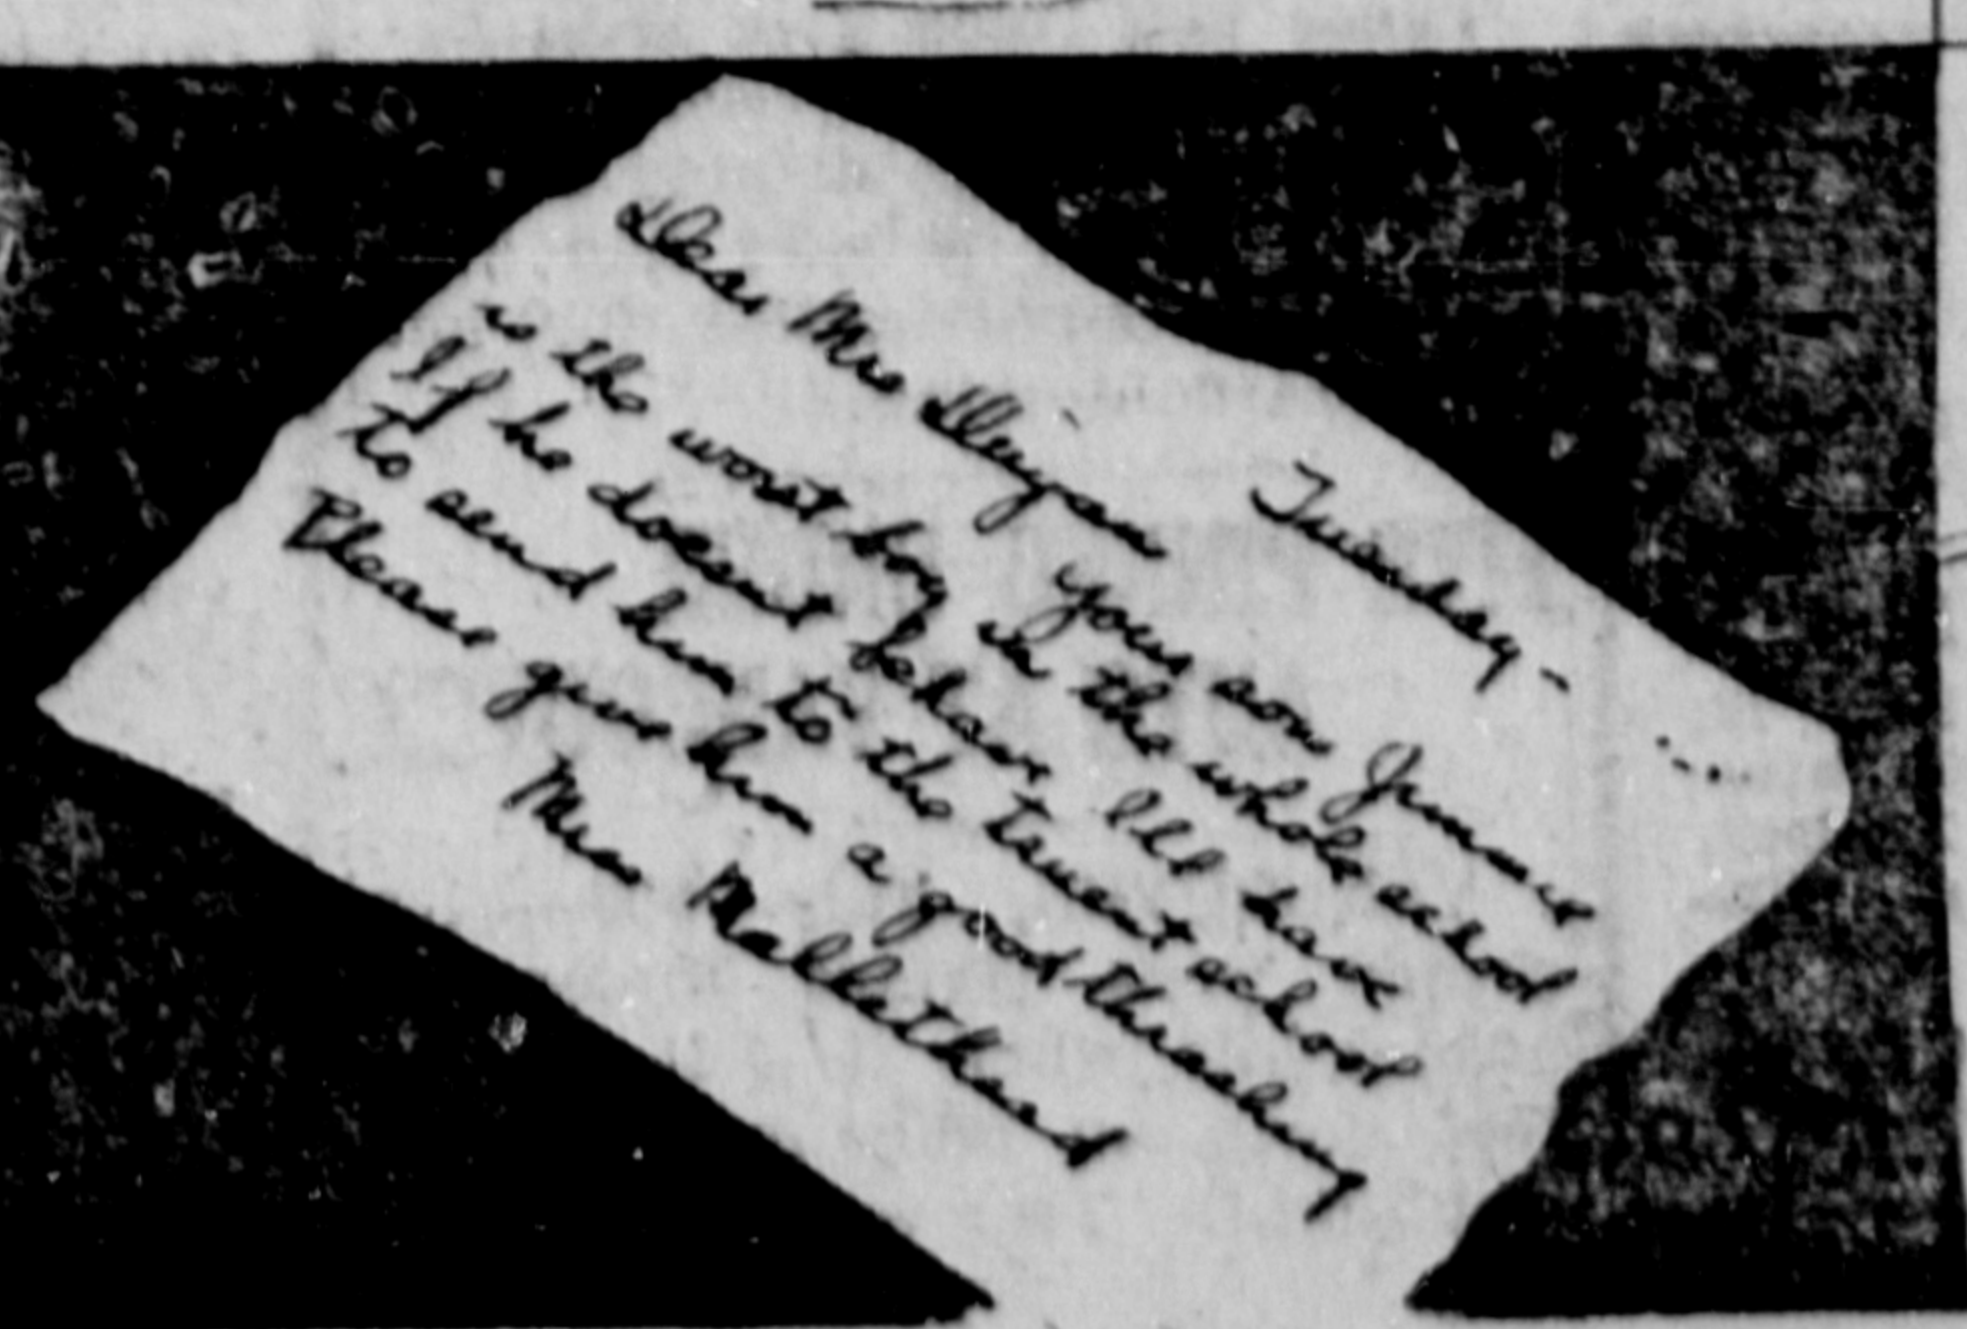 Tuesday -
Dear Mrs Dugan your son Jimmie
is the worst boy in the whole school
If he doesnt behave Ill have
to send him to the truent school
Please give him a good thrashing
Miss